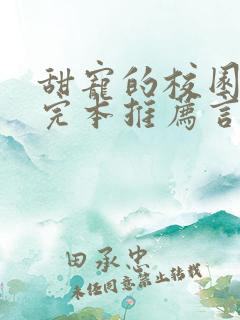 甜宠的校园
完本推荐言
田承忠
未经同意禁止转载